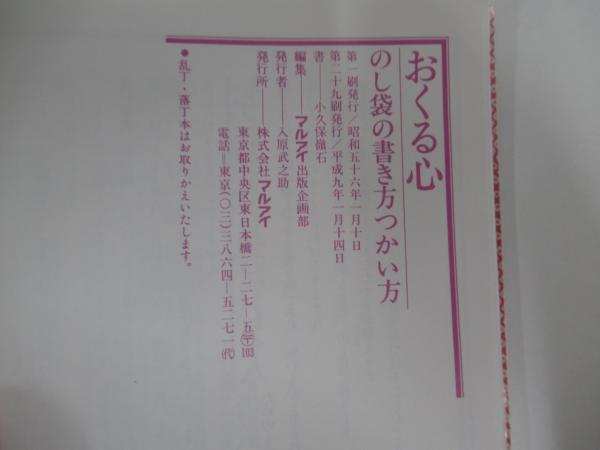 おくる心
のし袋の書き方つかい方
第一刷発行／昭和五十六年一月十日
第二十九刷発行／平成九年一月十四日
書――小久保嶺石
編集――マルアイ出版企画部
発行者――入原武之助
発行所――株式会社マルアイ
東京都中央区東日本橋二―二七―五〒103
電話＝東京(〇三)三八六四―五二七一(代)
●乱丁・落丁本はお取りかえいたします。